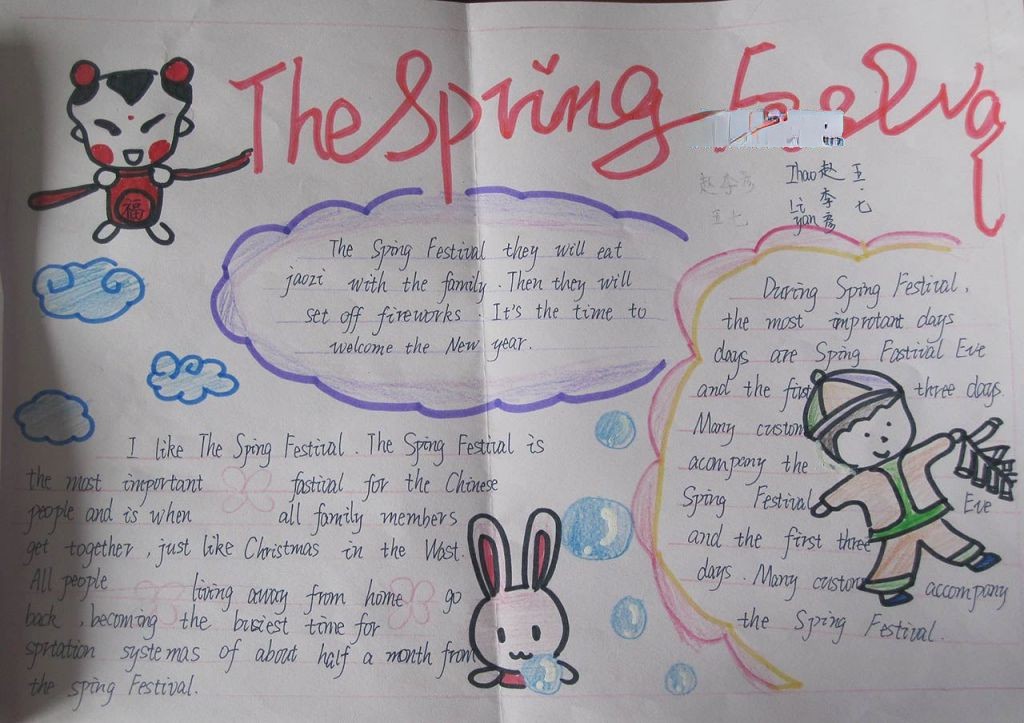 The Spring
赵李彦
王七
Zhao赵 王
Li 李 七
yan彦
福
The Sping Festival they will eat
jaozi with the family. Then they will
set off fireworks. It's the time to
welcome the New year.
During Sping Festival,
the most improtant days
days are Sping Fastival Eve
and the first three days.
Many custom
acompany the
Sping Festival Eve
and the first three
days. Many custom accompany
the Sping Festival.
I like The Sping Festival. The Sping Festival is
the most important fastival for the Chinese
people and is when all family members
get together, just like Christmas in the West.
All people living away from home go
back, becoming the busiest time for
sprtation systemas of about half a month from
the sping Festival.